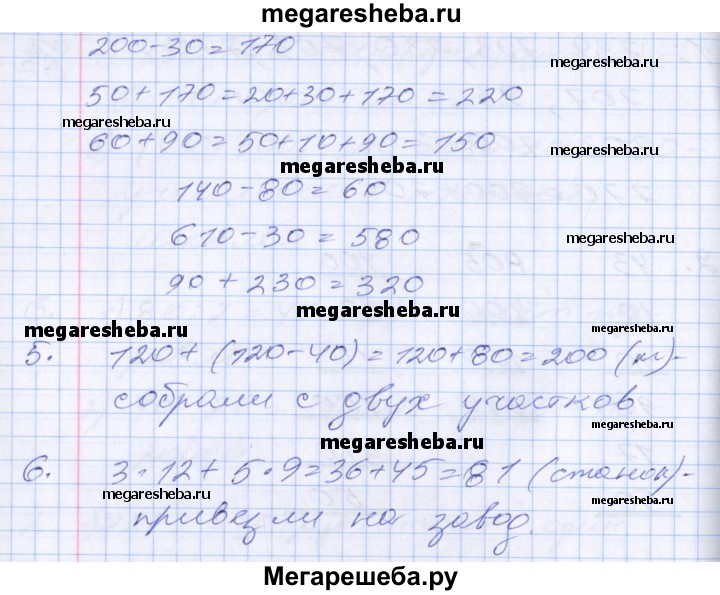 megaresheba.ru
200-30=170
megaresheba.ru
50+170=20+30+170=220
megaresheba.ru
60+90=50+10+90=150
megaresheba.ru
140-80=60
610-30=580
megaresheba.ru
90+230=320
megaresheba.ru
megaresheba.ru
megaresheba.ru
5. 120+(120-40)=120+80=200 (м)-
собрали с двух участков
megaresheba.ru
6. 3·12+5·9=36+45=81 (станок)-
megaresheba.ru
megaresheba.ru
привезли на завод.
Мегарешеба.ру